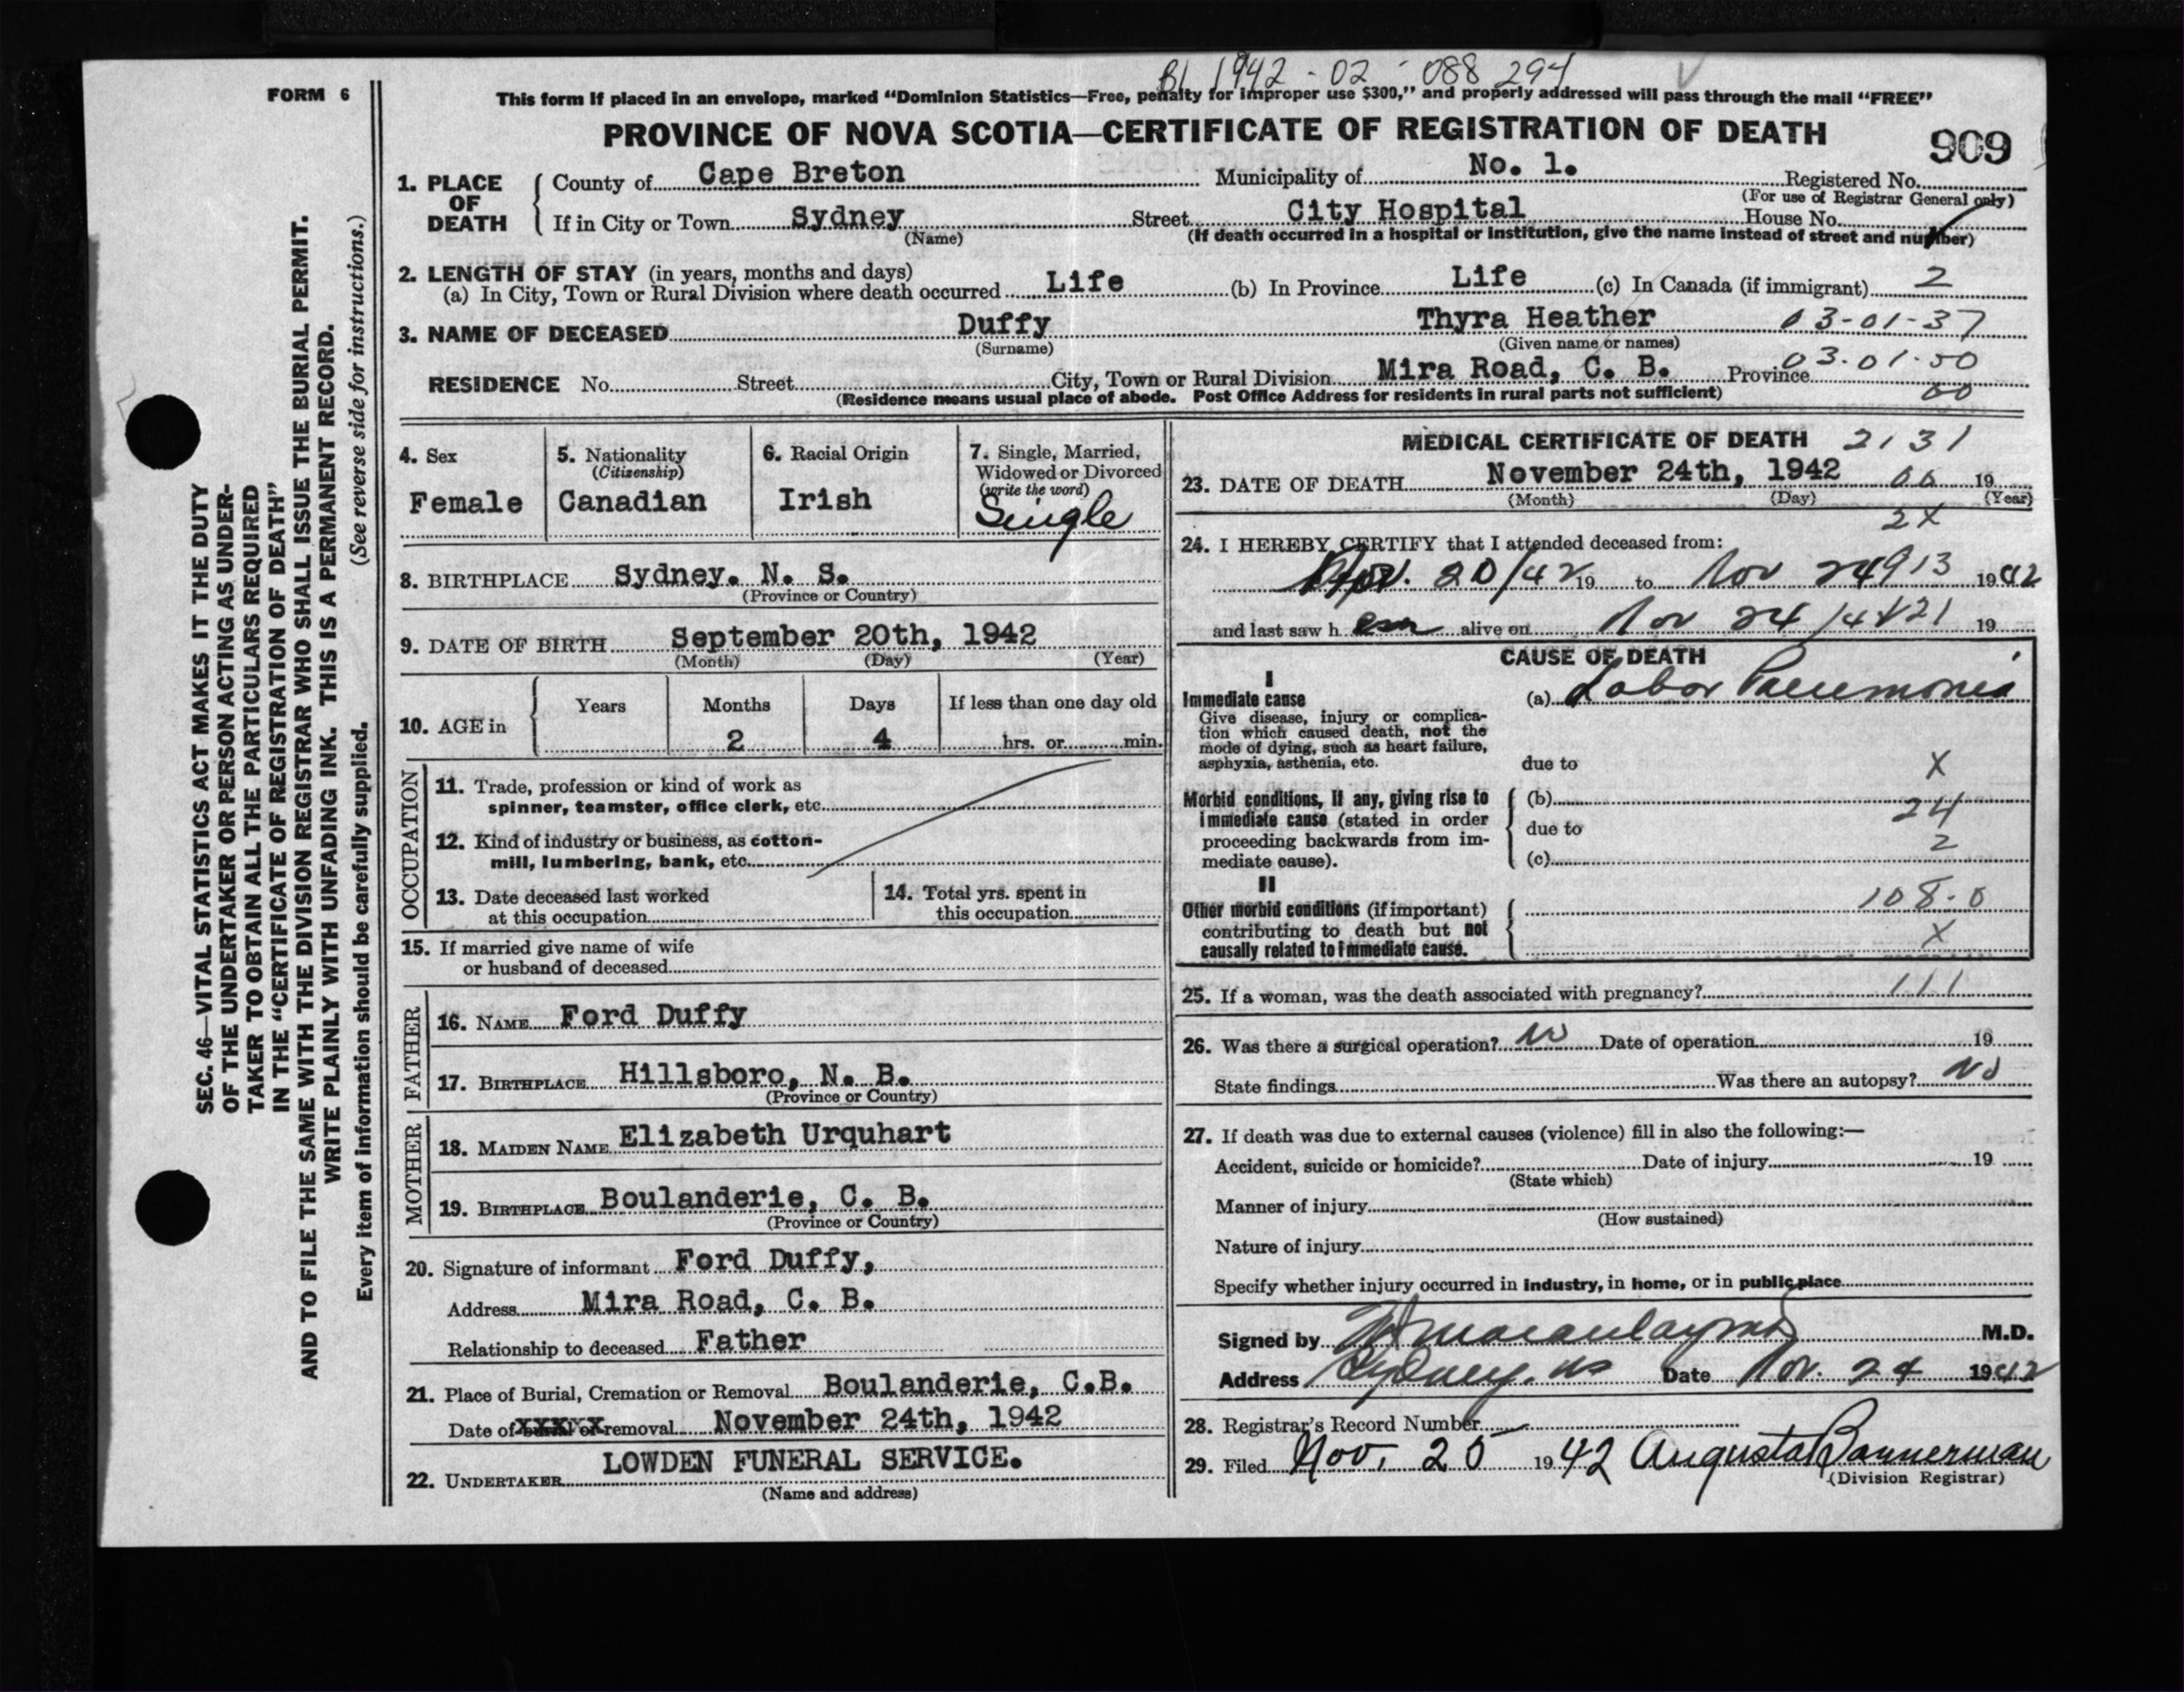 Bl 1942-02-088294
FORM 6
This form if placed in an envelope, marked “Dominion Statistics—Free, penalty for improper use $300,” and properly addressed will pass through the mail “FREE”
PROVINCE OF NOVA SCOTIA—CERTIFICATE OF REGISTRATION OF DEATH
909
1. PLACE OF DEATH
County of Cape Breton Municipality of No. 1. Registered No.
(For use of Registrar General only)
If in City or Town Sydney Street City Hospital House No.
(Name) (If death occurred in a hospital or institution, give the name instead of street and number)
2. LENGTH OF STAY (in years, months and days)
(a) In City, Town or Rural Division where death occurred Life (b) In Province Life (c) In Canada (if immigrant) 2
3. NAME OF DECEASED Duffy Thyra Heather 03-01-37
(Surname) (Given name or names)
RESIDENCE No. Street City, Town or Rural Division Mira Road, C. B. Province 03.01.50
(Residence means usual place of abode. Post Office Address for residents in rural parts not sufficient) 00
4. Sex
Female
5. Nationality
(Citizenship)
Canadian
6. Racial Origin
Irish
7. Single, Married,
Widowed or Divorced
(write the word)
Single
8. BIRTHPLACE Sydney. N. S.
(Province or Country)
9. DATE OF BIRTH September 20th, 1942
(Month) (Day) (Year)
10. AGE in Years Months Days If less than one day old
2 4 hrs. or min.
OCCUPATION
11. Trade, profession or kind of work as
spinner, teamster, office clerk, etc.
12. Kind of industry or business, as cotton-
mill, lumbering, bank, etc.
13. Date deceased last worked
at this occupation
14. Total yrs. spent in
this occupation
15. If married give name of wife
or husband of deceased
FATHER
16. NAME Ford Duffy
17. BIRTHPLACE Hillsboro, N. B.
(Province or Country)
MOTHER
18. MAIDEN NAME Elizabeth Urquhart
19. BIRTHPLACE Boulanderie, C. B.
(Province or Country)
20. Signature of informant Ford Duffy,
Address Mira Road, C. B.
Relationship to deceased Father
21. Place of Burial, Cremation or Removal Boulanderie, C.B.
Date of burial or removal November 24th, 1942
22. UNDERTAKER LOWDEN FUNERAL SERVICE.
(Name and address)
MEDICAL CERTIFICATE OF DEATH 2131
23. DATE OF DEATH November 24th, 1942 19
(Month) (Day) (Year)
2X
24. I HEREBY CERTIFY that I attended deceased from:
Nov. 20/42 19 to Nov 24 913 1942
and last saw h er alive on Nov 24/42 19
CAUSE OF DEATH
I
Immediate cause
Give disease, injury or complica-
tion which caused death, not the
mode of dying, such as heart failure,
asphyxia, asthenia, etc.
(a) Lobar Pneumonia
due to X
Morbid conditions, if any, giving rise to
immediate cause (stated in order
proceeding backwards from im-
mediate cause).
(b) 24
due to
2
(c)
II
Other morbid conditions (if important)
contributing to death but not
causally related to immediate cause.
108.0
X
25. If a woman, was the death associated with pregnancy? 111
26. Was there a surgical operation? No Date of operation 19
State findings Was there an autopsy? No
27. If death was due to external causes (violence) fill in also the following:—
Accident, suicide or homicide? Date of injury 19
(State which)
Manner of injury
(How sustained)
Nature of injury
Specify whether injury occurred in industry, in home, or in public place
Signed by Macaulay MD M.D.
Address Sydney. NS Date Nov. 24 1942
28. Registrar's Record Number
29. Filed Nov. 25 1942 Augusta Bannerman
(Division Registrar)
SEC. 46—VITAL STATISTICS ACT MAKES IT THE DUTY
OF THE UNDERTAKER OR PERSON ACTING AS UNDER-
TAKER TO OBTAIN ALL THE PARTICULARS REQUIRED
IN THE “CERTIFICATE OF REGISTRATION OF DEATH”
AND TO FILE THE SAME WITH THE DIVISION REGISTRAR WHO SHALL ISSUE THE BURIAL PERMIT.
WRITE PLAINLY WITH UNFADING INK. THIS IS A PERMANENT RECORD.
Every item of information should be carefully supplied. (See reverse side for instructions.)